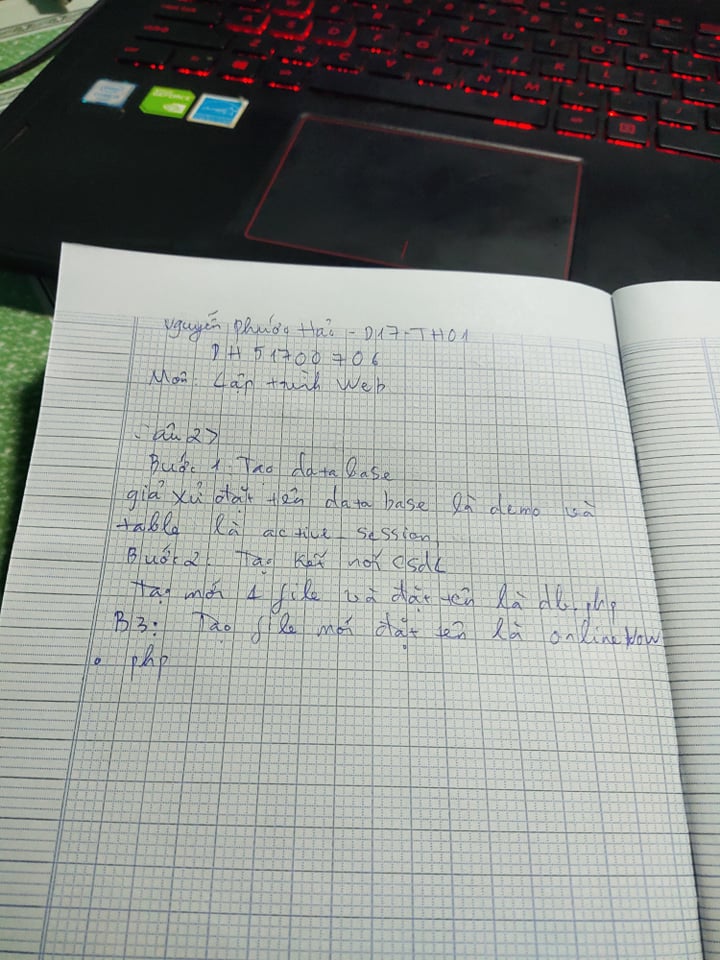 Nguyễn Phước Hải - D17-TH01
DH51700706
Môn: Lập trình Web
Câu 2>
Bước 1: Tạo database
giả xử đặt tên database là demo và
table là active_session,
Bước 2: Tạo kết nối csdl
Tạo mới 1 file và đặt tên là db.php
B3: Tạo file mới đặt tên là onlineNow
.php